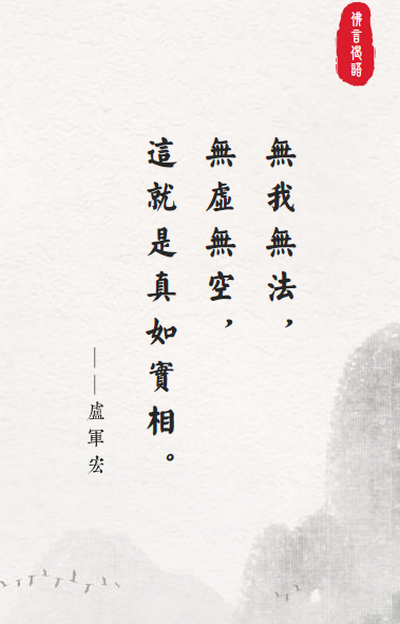 佛言偈語
無我無法，
無虛無空，
這就是真如實相。
——盧軍宏